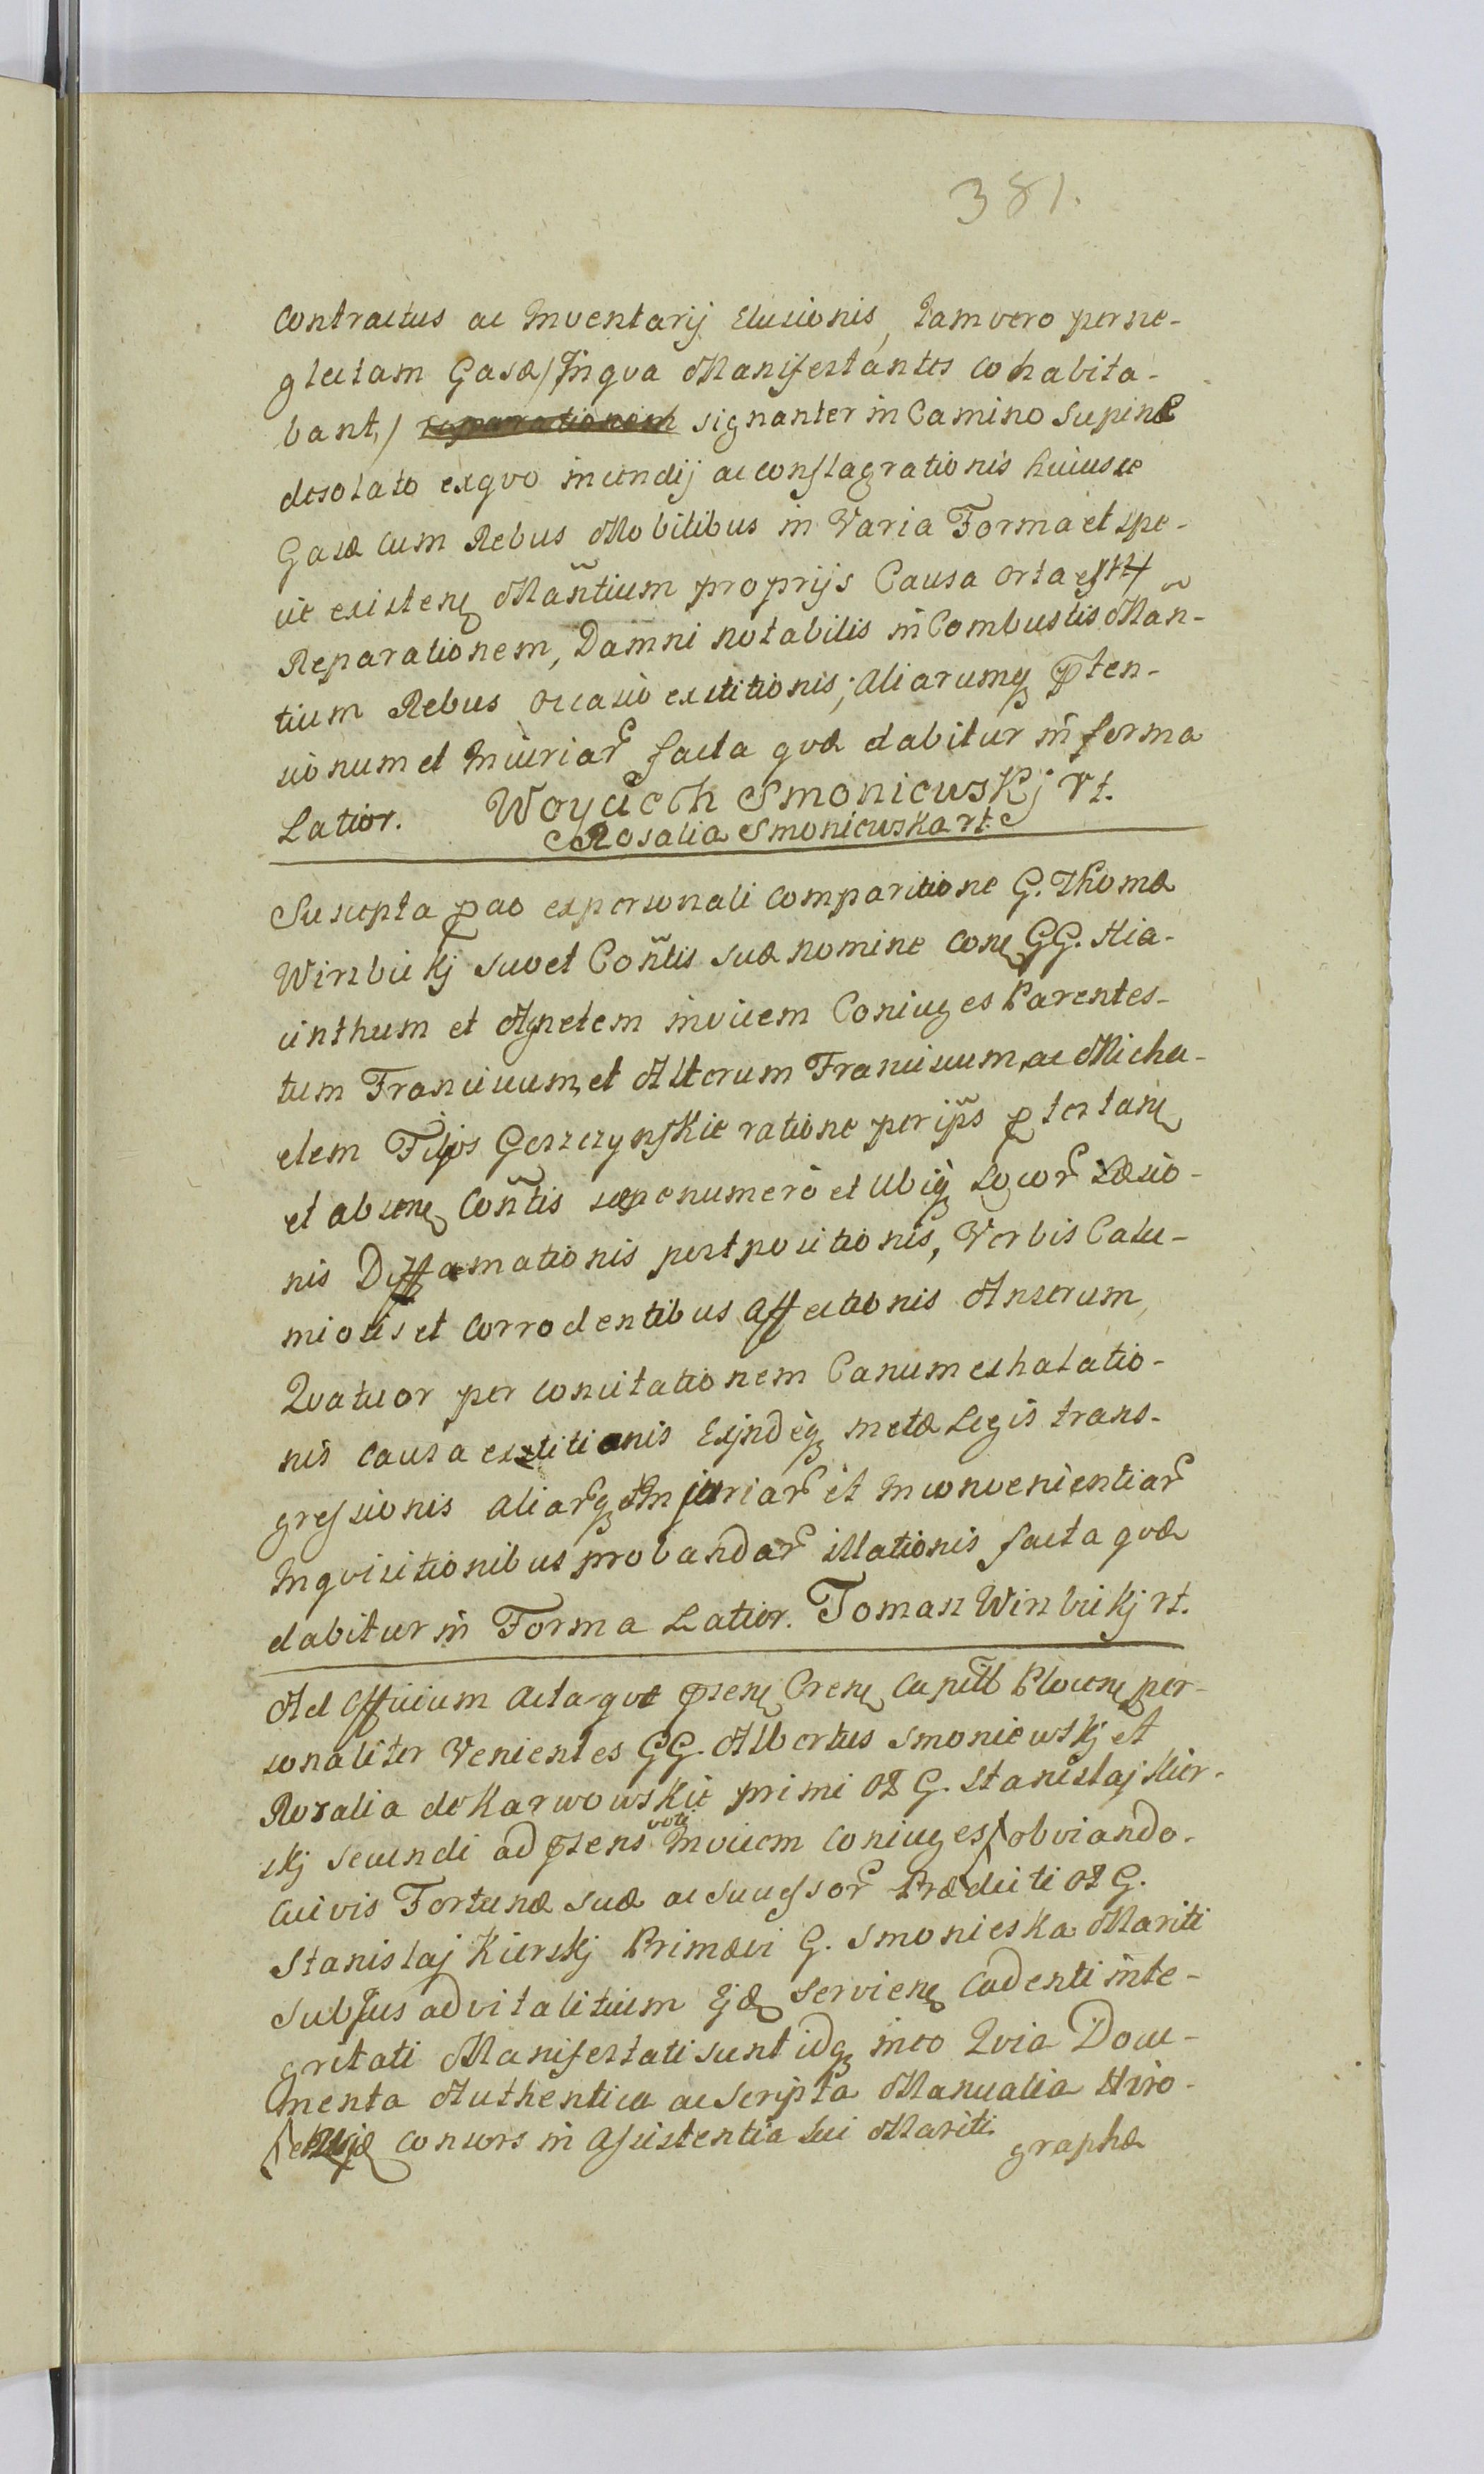 381.
Contractus ac Inventarij Elusionis, Tam vero per ne-
glectam Casæ /In qva Manifestantes cohabita-
bant,/ reparationem signanter in Camino supine
desolato ex qvo incendij ac conflagrationis huiusce
Casæ cum Rebus Mobilibus in Varia Forma et spe-
cie existenę Mañtium proprijs Causa orta est
Reparationem, Damni notabilis in Combustis Man-
tium Rebus occasio extitionis; Aliarumq ꝑten-
sionum et Iniuriar facta qvæ dabitur in forma
Latior. Woyciech Smoniewskj rt.
Rosalia Smoniewska rt.
Suscepta ꝑao ex personali comparitione G. Thomæ
Winbickj suo et Coñtis suæ nomine conę GG. Hia-
cinthum et Agnetem invicem Coniuges Parentes-
tum Franciscum, et Alterum Franciscum, ac Micha-
elem Filjos Goszczynskie ratione per ip̃s ꝑtestanę
et absenę Coñtis sæpenumero et Ubiq Locor Læsio-
nis Diffamationis postpositionis, Verbis Calu-
miosis et corrodentibus affectionis Anserum,
Qvatuor per concitationem Canum exhalatio-
nis causa extitionis Exindeq metæ Legis trans-
gressionis aliarq Injuriar et Inconvenientiar
Inqvisitionibus probandar illationis facta qvæ
dabitur in Forma Latior. Toman Winbickj rt.
Ad Officium Actaqve ꝑsenę Crenę Capitll Plocenę per-
sonaliter Venientes GG. Albertus Smoniewskj et
Rosalia de Karwowskie primi olȝ G. Stanislaj Kier-
skj secundi ad ꝑsens voti invicem coniuges / obviando
cuivis Fortunæ suæ ac successor Prædicti olȝ G.
Stanislaj Kierskj Primævi G. Smonieska Mariti
sub Jus advitalitium Ejdę servienę cadenti inte-
gritati Manifestati sunt idq in eo Qvia Docu-
menta Authentica ac scripta Manualia Hiro-
/ consors in assistentia sui Mariti
graphæ